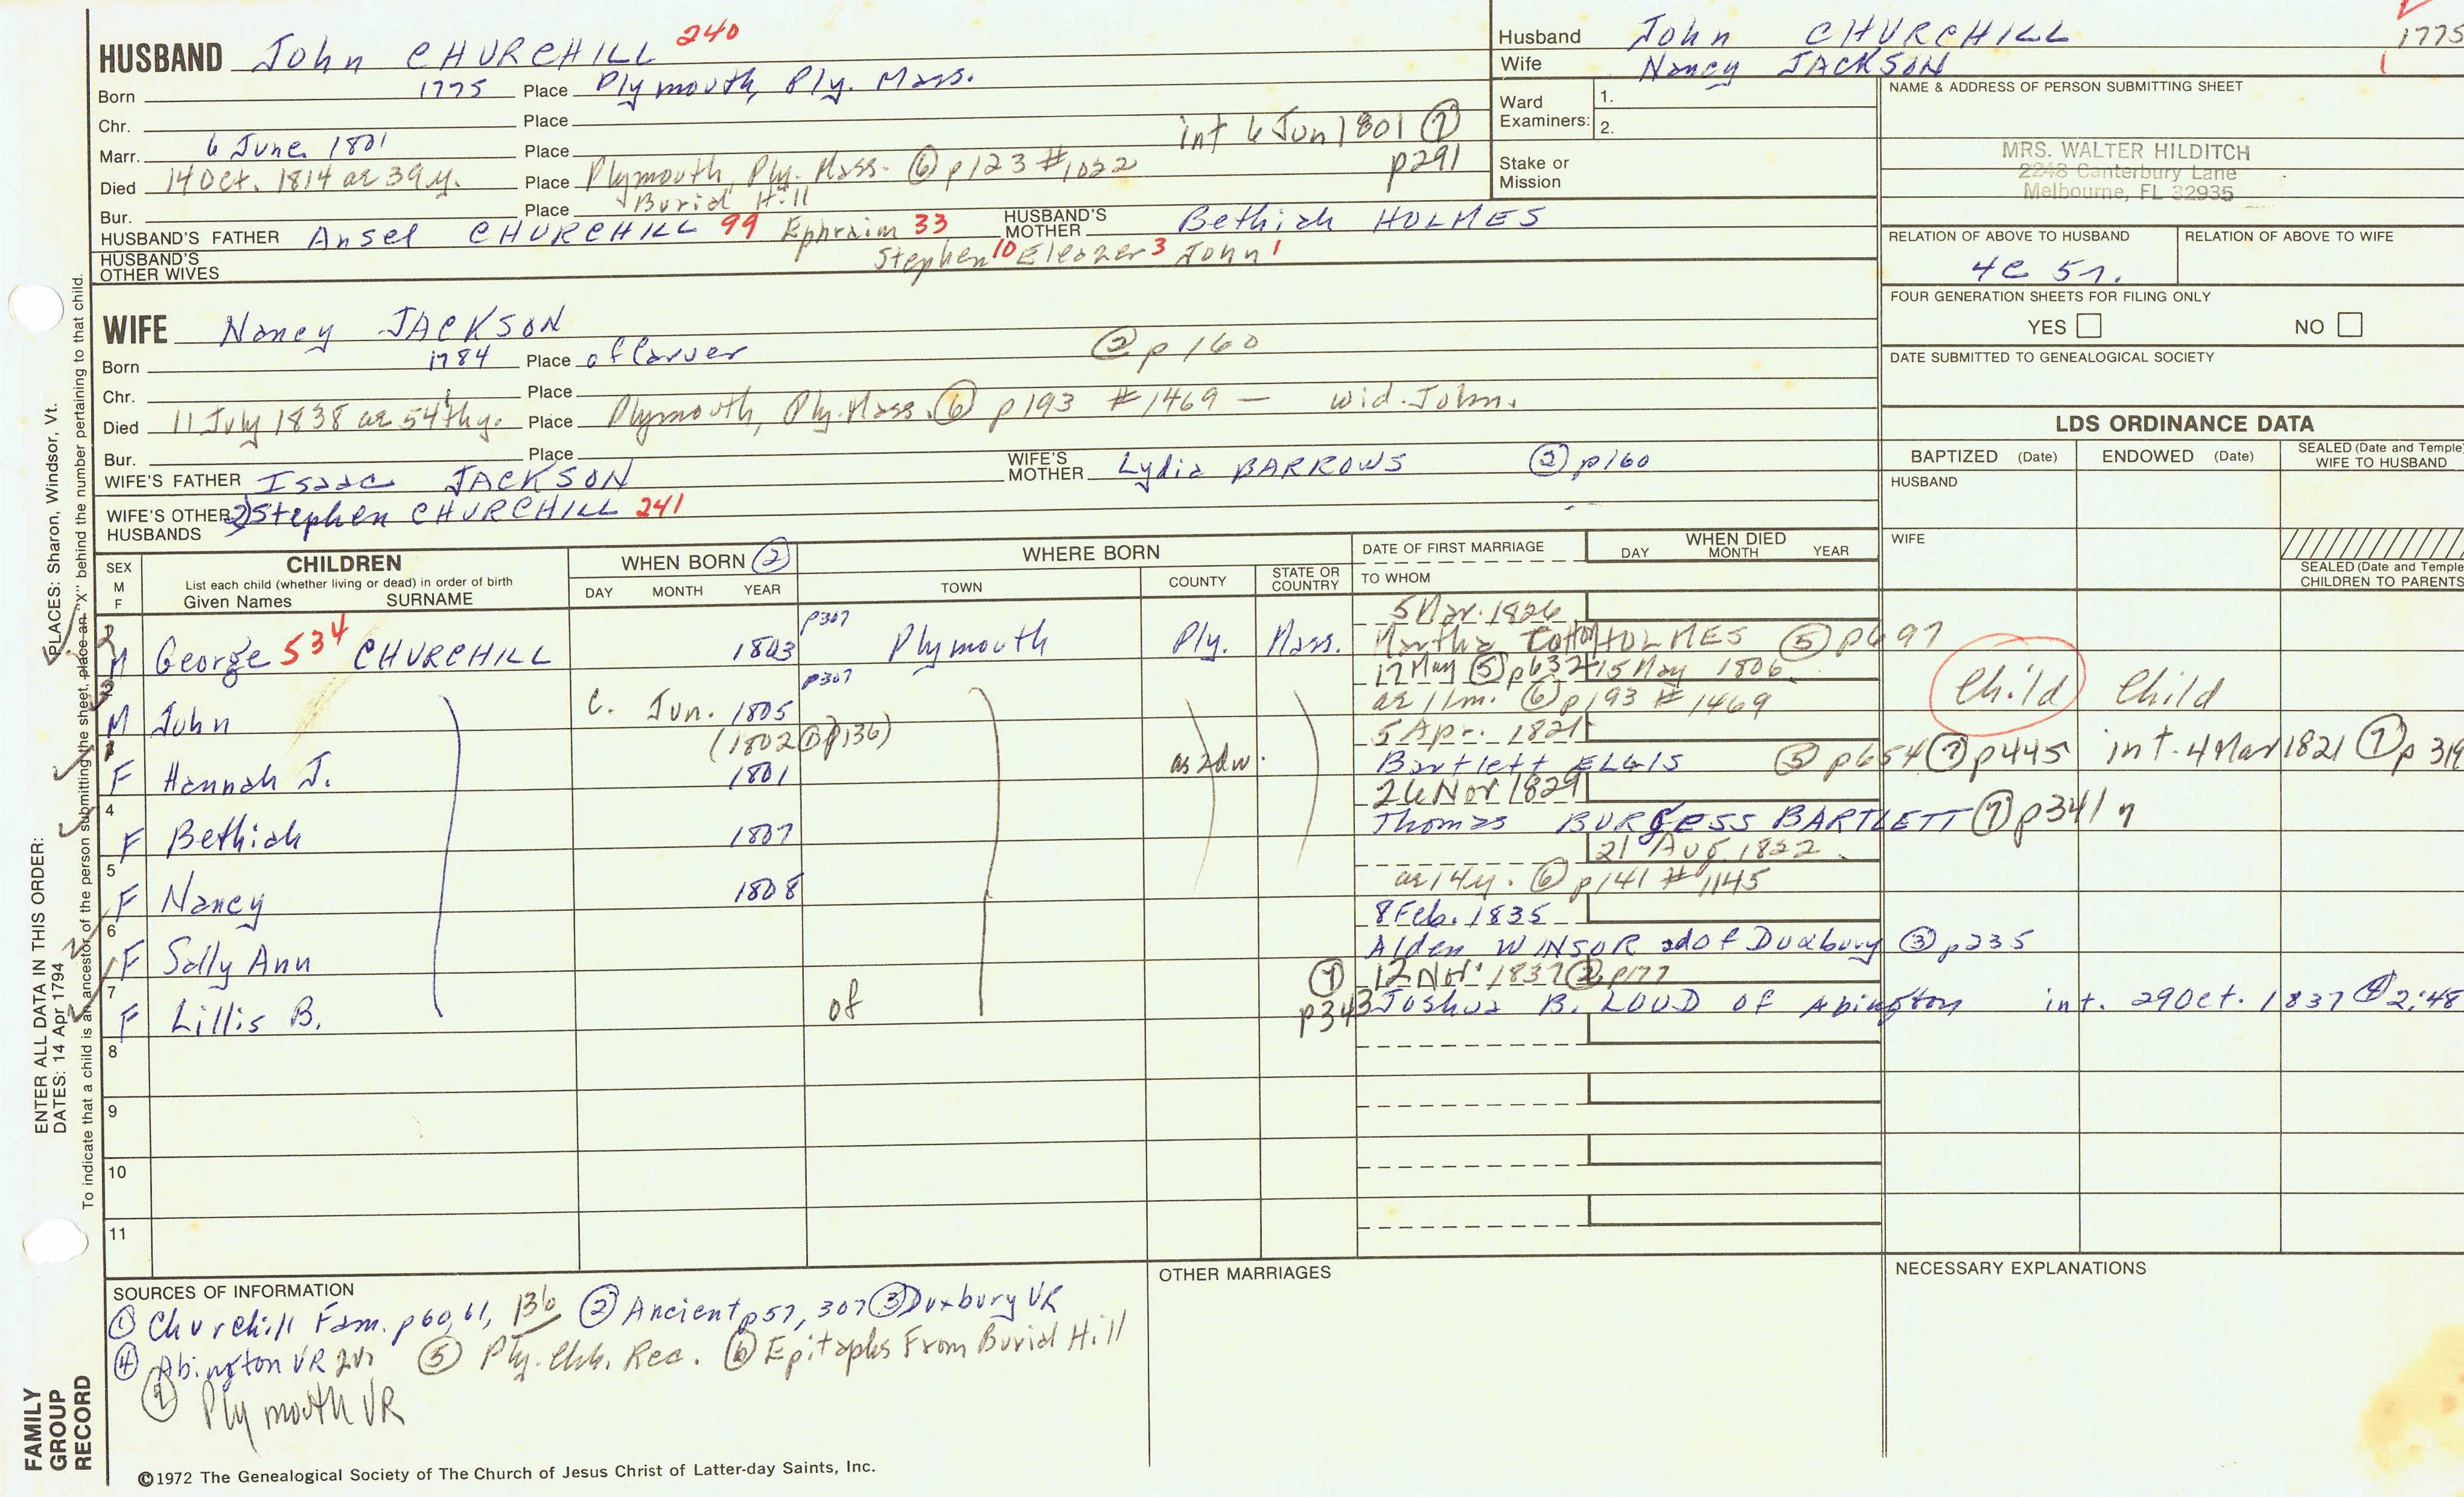 HUSBAND John CHURCHILL 240
Born 1775 Place Plymouth, Ply. Mass.
Chr. Place
Marr. 6 June 1801 Place int 6 Jun 1801 ⑦ p291
Died 14 Oct. 1814 ae 39 y. Place Plymouth, Ply. Mass. ⑥ p123 #1022
Bur. Place Burial Hill
HUSBAND'S FATHER Ansel CHURCHILL 99 Ephraim 33 HUSBAND'S MOTHER Bethiah HOLMES
HUSBAND'S OTHER WIVES Stephen 10 Eleazer 3 John 1
Husband John CHURCHILL 1775
Wife Nancy JACKSON 1
Ward Examiners: 1. 2.
Stake or Mission
NAME & ADDRESS OF PERSON SUBMITTING SHEET
MRS. WALTER HILDITCH
2248 Canterbury Lane
Melbourne, FL 32935
RELATION OF ABOVE TO HUSBAND RELATION OF ABOVE TO WIFE
4c 5r.
FOUR GENERATION SHEETS FOR FILING ONLY
YES NO
DATE SUBMITTED TO GENEALOGICAL SOCIETY
WIFE Nancy JACKSON
Born 1784 Place of Carver ② p160
Chr. Place
Died 11 July 1838 ae 54thy. Place Plymouth, Ply. Mass. ⑥ p193 #1469 — wid. John.
Bur. Place
WIFE'S FATHER Isaac JACKSON WIFE'S MOTHER Lydia BARROWS ② p160
WIFE'S OTHER HUSBANDS 2) Stephen CHURCHILL 241
LDS ORDINANCE DATA
BAPTIZED (Date) ENDOWED (Date) SEALED (Date and Temple) WIFE TO HUSBAND
HUSBAND
WIFE
SEALED (Date and Temple) CHILDREN TO PARENTS
SEX M F CHILDREN List each child (whether living or dead) in order of birth Given Names SURNAME
WHEN BORN ② DAY MONTH YEAR
WHERE BORN TOWN COUNTY STATE OR COUNTRY
DATE OF FIRST MARRIAGE TO WHOM
WHEN DIED DAY MONTH YEAR
2 M George 534 CHURCHILL 1803 p307 Plymouth Ply. Mass. 5 Mar. 1826 Martha Cotton HOLMES ⑤ p697
3 M John C. Jun. 1805 p307 17 May ⑤ p632 15 May 1806 ae 11m. ⑥ p193 #1469 Child Child
1 F Hannah J. (1802 ① p136) 1801 as 2dw. 5 Apr. 1821 Bartlett ELLIS ⑤ p654 ⑦ p445 int. 4 Mar 1821 ⑦ p 319
4 F Bethiah 1807 26 Nov 1829 Thomas BURGESS BARTLETT ⑦ p341
5 F Nancy 1808 21 Aug. 1822 ae 14y. ⑥ p141 #1145
6 F Sally Ann 8 Feb. 1835 Alden WINSOR 2d of Duxbury ③ p235
7 F Lillis B. of ⑦ p343 12 Nov. 1837 ② p177 Joshua B. LOUD of Abington int. 29 Oct. 1837 ④ 2:48
8
9
10
11
SOURCES OF INFORMATION
① Churchill Fam. p60,61, 136 ② Ancient p57, 307 ③ Duxbury VR
④ Abington VR ⑤ Ply. Chh. Rec. ⑥ Epitaphs From Burial Hill
⑦ Plymouth VR
OTHER MARRIAGES
NECESSARY EXPLANATIONS
©1972 The Genealogical Society of The Church of Jesus Christ of Latter-day Saints, Inc.
FAMILY GROUP RECORD
ENTER ALL DATA IN THIS ORDER:
DATES: 14 Apr 1794
PLACES: Sharon, Windsor, Vt.
To indicate that a child is an ancestor of the person submitting the sheet, place an "X" behind the number pertaining to that child.